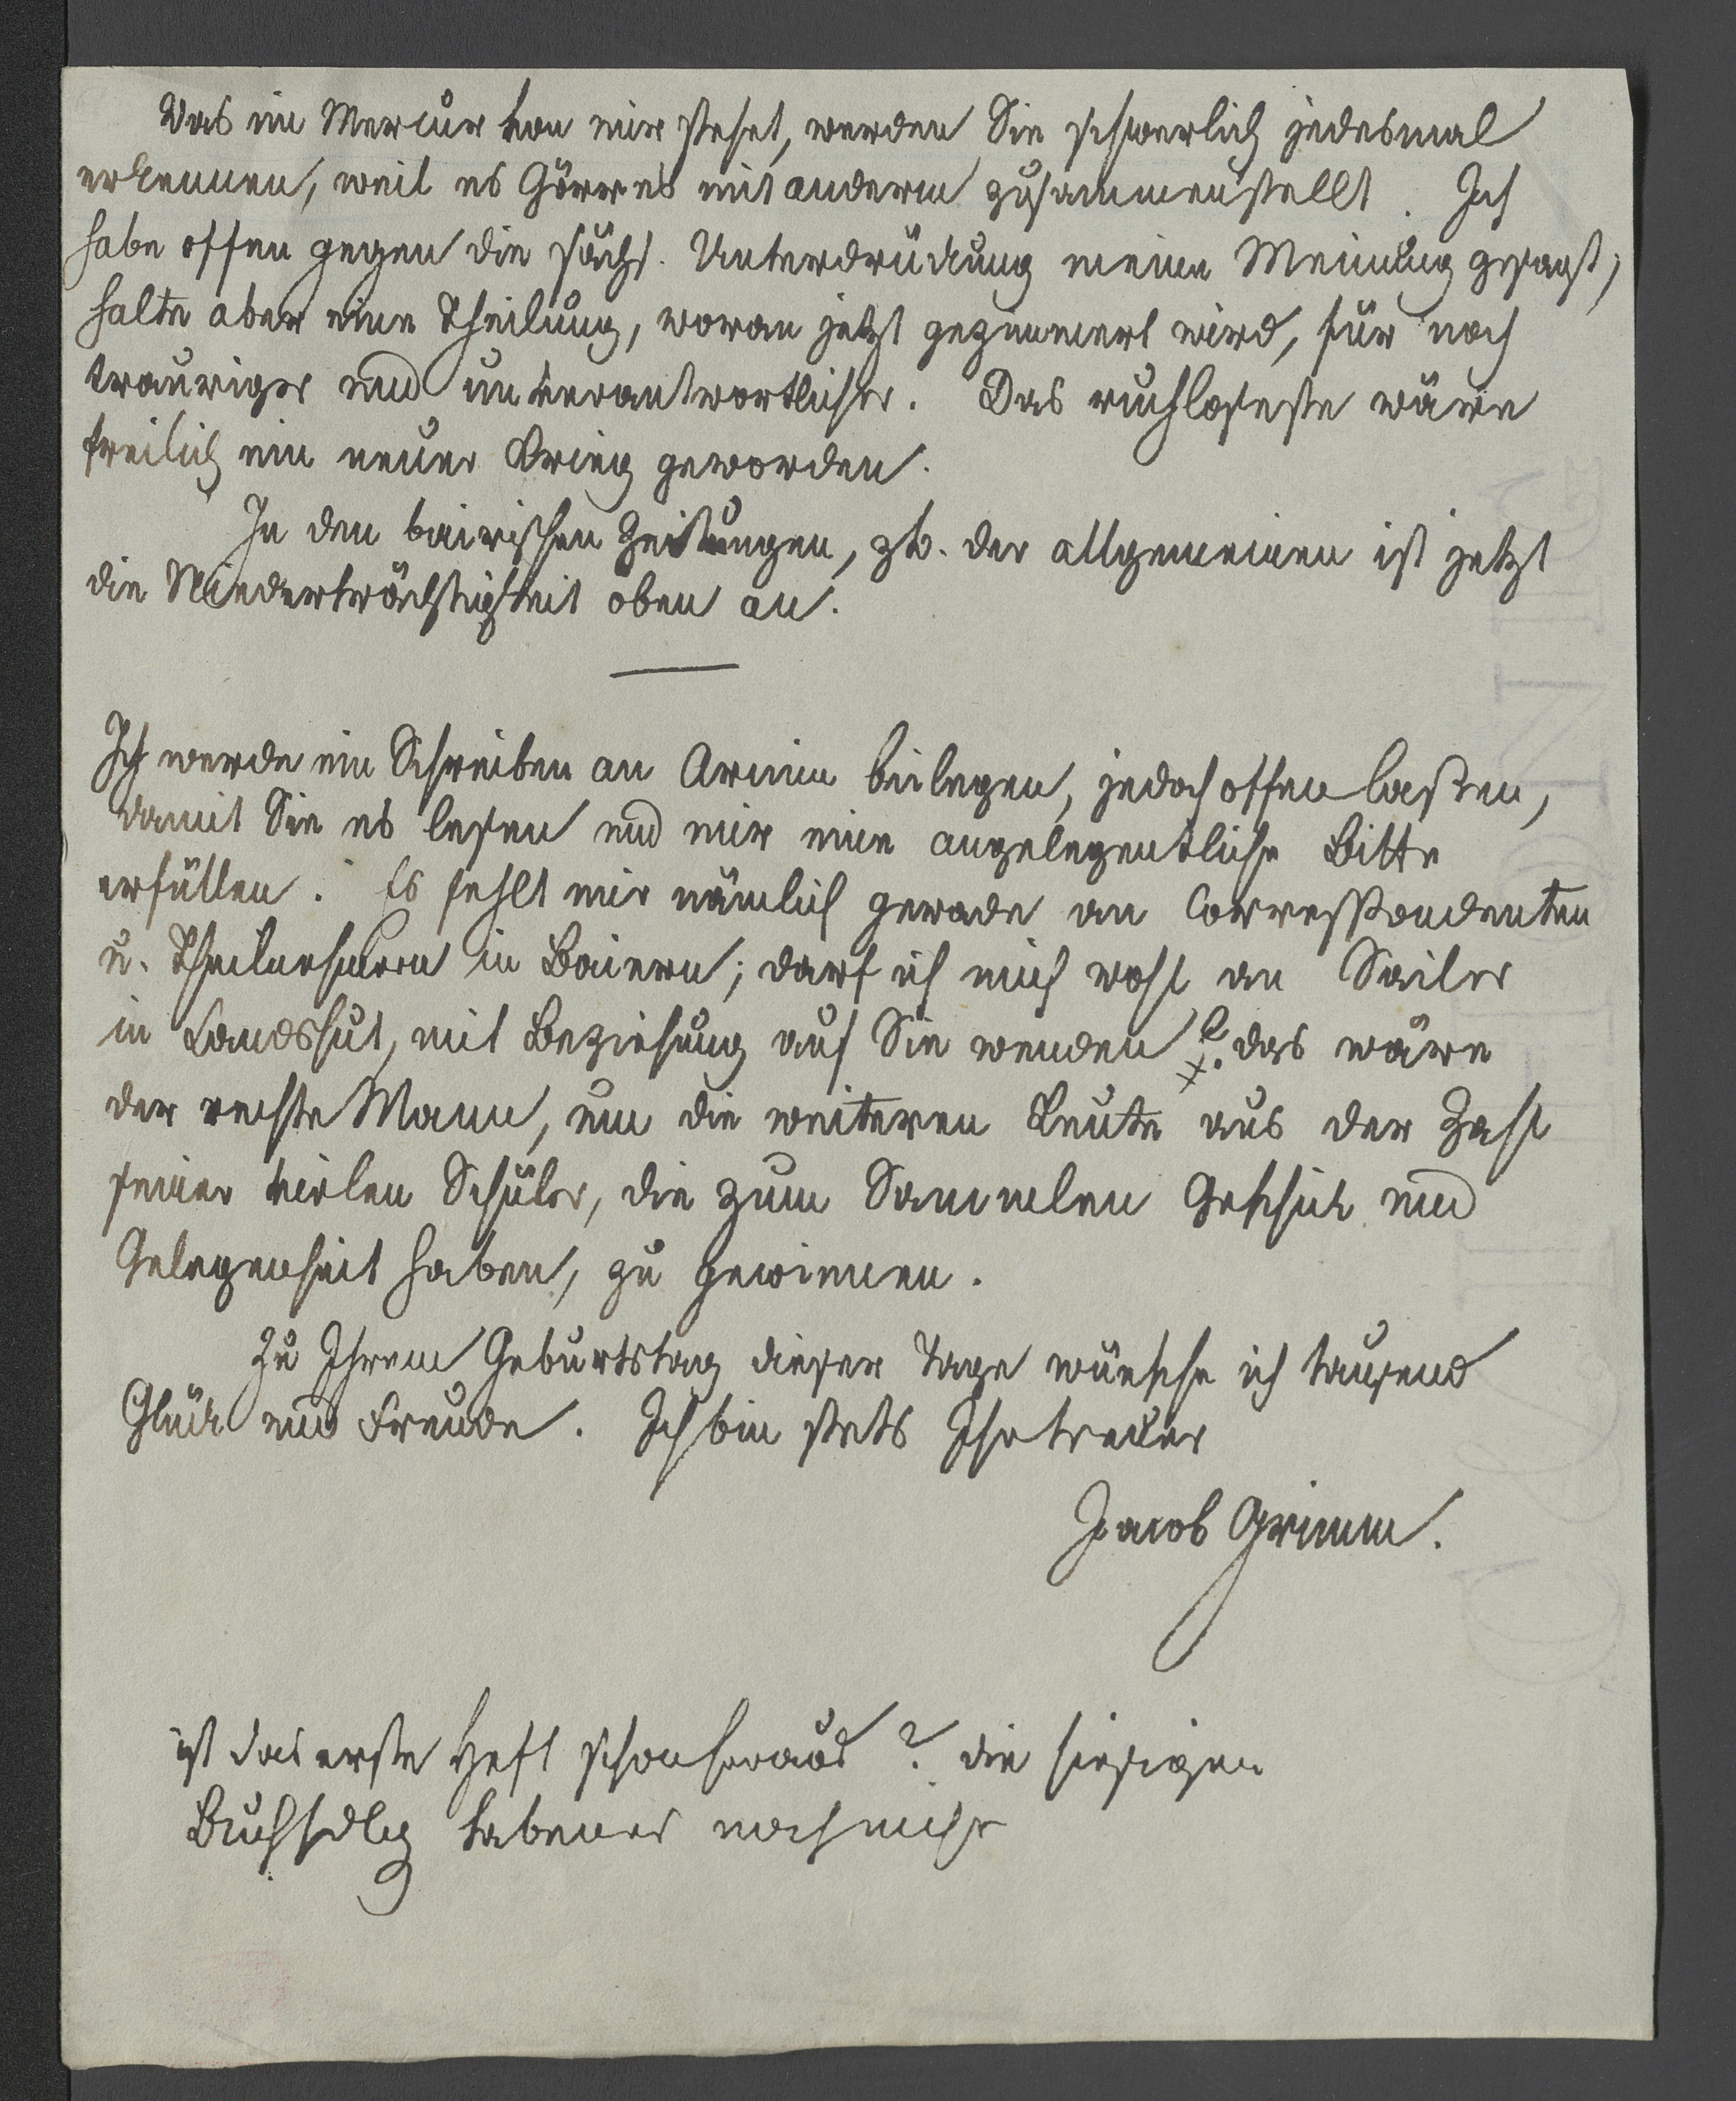 Was im Mercur von mir stehet, werden Sie schwerlich jedesmal
erkennen, weil es Görres mit anderm zusammenstellt. Ich
habe offen gegen die sächs. Unterdrückung meine Meinung gesagt,
halte aber eine Theilung, woran jetzt gezimmert wird, für noch
trauriger und unverantwortlicher. Das ruchloseste wäre
freilich ein neuer Krieg geworden.
In den bairischen Zeitungen, zb. der allgemeinen ist jetzt
die Niederträchtigkeit oben an.
Ich werde ein Schreiben an Arnim beilegen, jedoch offen laßen,
damit Sie es lesen und mir eine angelegentliche Bitte
erfüllen. Es fehlt mir nämlich gerade an Correspondenten
u. Theilnehmern in Baiern; darf ich mich wohl an Sailer
in Landshut, mit Beziehung auf Sie wenden? das wäre
der rechte Mann, um die weiteren Leute aus der Zahl
seiner vielen Schüler, die zum Sammelen Geschick und
Gelegenheit haben, zu gewinnen.
Zu Ihrem Geburtstag dieser Tage wünsche ich tausend
Glück und Freude. Ich bin stets Ihr treuer
Jacob Grimm.
ist das erste Heft schon heraus? die hiesigen
Buchhdlg haben es noch nicht